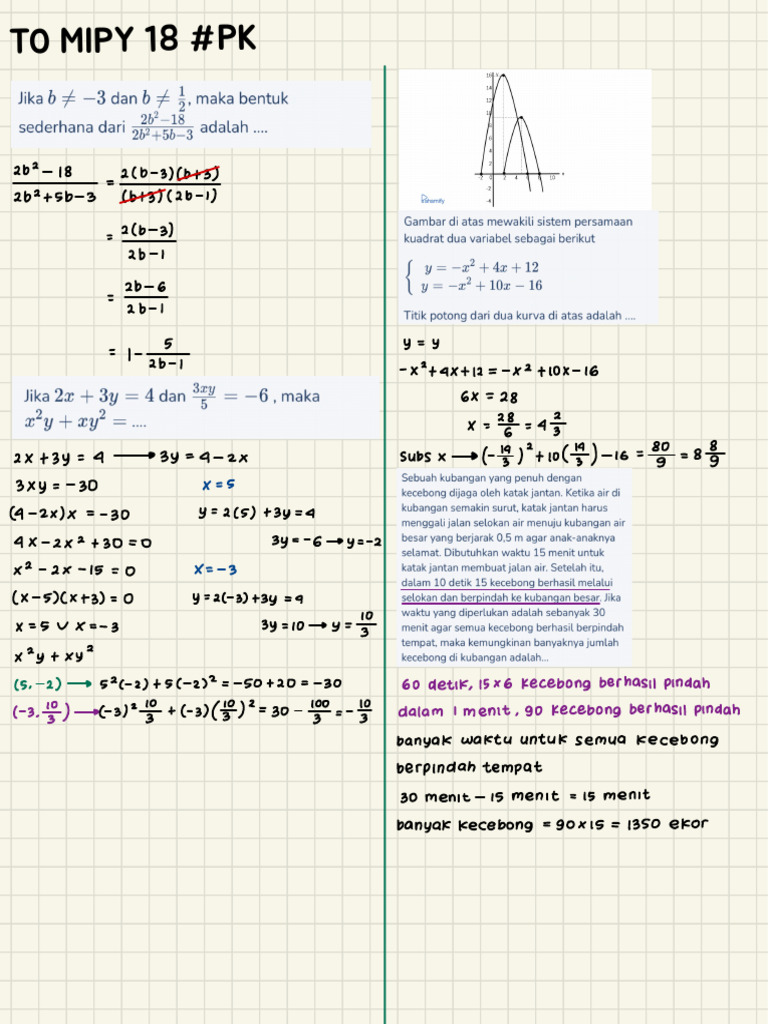 TO MIPY 18 #PK
Jika b ≠ −3 dan b ≠ 1/2, maka bentuk
sederhana dari (2b²−18)/(2b²+5b−3) adalah ....
(2b² − 18)/(2b² + 5b − 3) = (2(b−3)(b+3))/((b+3)(2b−1))
= (2(b−3))/(2b−1)
= (2b−6)/(2b−1)
= 1 − 5/(2b−1)
Jika 2x + 3y = 4 dan 3xy/5 = −6 , maka
x²y + xy² = ....
2x + 3y = 4 ⟶ 3y = 4 − 2x
3xy = −30
(4 − 2x)x = −30
4x − 2x² + 30 = 0
x² − 2x − 15 = 0
(x − 5)(x + 3) = 0
x = 5 ∪ x = −3
x²y + xy²
x = 5
y = 2(5) + 3y = 4
3y = −6 → y = −2
x = −3
y = 2(−3) + 3y = 4
3y = 10 → y = 10/3
(5, −2) ⟶ 5²(−2) + 5(−2)² = −50 + 20 = −30
(−3, 10/3) ⟶ (−3)² 10/3 + (−3)(10/3)² = 30 − 100/3 = −10/3
16
14
12
10
8
6
4
2
-2 0 2 4 6 8 10 x
-2
-4
Gambar di atas mewakili sistem persamaan
kuadrat dua variabel sebagai berikut
{ y = −x² + 4x + 12
y = −x² + 10x − 16
Titik potong dari dua kurva di atas adalah ....
y = y
−x² + 4x + 12 = −x² + 10x − 16
6x = 28
x = 28/6 = 4 2/3
Subs x ⟶ (−14/3)² + 10(14/3) − 16 = 80/9 = 8 8/9
Sebuah kubangan yang penuh dengan
kecebong dijaga oleh katak jantan. Ketika air di
kubangan semakin surut, katak jantan harus
menggali jalan selokan air menuju kubangan air
besar yang berjarak 0,5 m agar anak-anaknya
selamat. Dibutuhkan waktu 15 menit untuk
katak jantan membuat jalan air. Setelah itu,
dalam 10 detik 15 kecebong berhasil melalui
selokan dan berpindah ke kubangan besar. Jika
waktu yang diperlukan adalah sebanyak 30
menit agar semua kecebong berhasil berpindah
tempat, maka kemungkinan banyaknya jumlah
kecebong di kubangan adalah...
60 detik, 15 × 6 kecebong berhasil pindah
dalam 1 menit, 90 kecebong berhasil pindah
banyak waktu untuk semua kecebong
berpindah tempat
30 menit − 15 menit = 15 menit
banyak kecebong = 90 × 15 = 1350 ekor